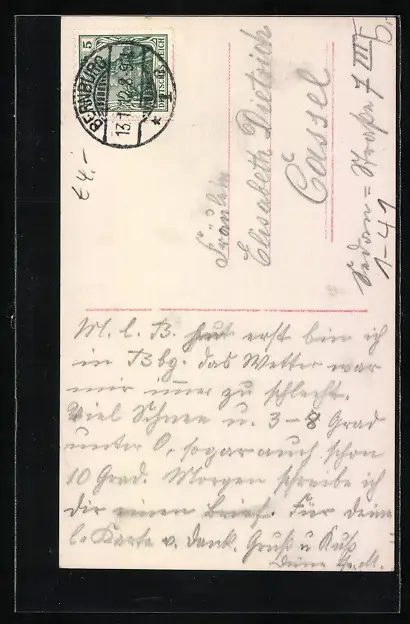 5
DEUTSCHES REICH
BERNBURG
13.1.12
Fräulein
Elisabeth Dietrich
Cassel
Sedan=Straße 7 III
1-41
£4.-
M. l. B. heut erst bin ich
in Bbg. das Wetter war
mir immer zu schlecht.
Viel Schnee u. 3-8 Grad
unter 0, sogar auch schon
10 Grad. Morgen schreibe ich
dir einen Brief. Für deine
l. Karte v. Dank. Gruß u Kuß
Deine